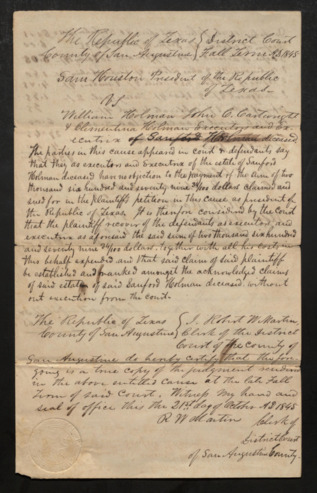 The Republic of Texas } District Court
County of San Augustine } Fall Term AD 1845
Sam Houston President of the Republic
of Texas
VS
William Holman John C. Cartwright
& Clementina Holman Executors and Ex-
ecutrix of Sanford Holman deceased
The parties in this cause appeared in court & defendants say
that they as executors and Executrix of the estate of Sanford
Holman deceased have no objection to the payment of the sum of two
thousand six hundred and seventy nine /100 dollars claimed and
sued for in the plaintiffs petition in this cause as president of
the Republic of Texas. It is therefore considered by the Court
that the plaintiff recover of the defendants as executors and
executrix as aforesaid the said sum of two thousand six hundred
and seventy nine /100 dollars, together with all his costs in
this behalf expended and that said claim of said plaintiff
be established and ranked amongst the acknowledged claims
of said estate of said Sanford Holman deceased without
out execution from the court.
The Republic of Texas } I, Robert W. Martin,
County of San Augustine } Clerk of the District
Court of the County of
San Augustine do hereby certify that the fore
going is a true copy of the judgment rendered
in the above entitled cause at the late Fall
Term of said Court. Witness my hand and
seal of office this the 21st day of Octbr AD 1845
R W Martin Clerk of
District Court
of San Augustine County